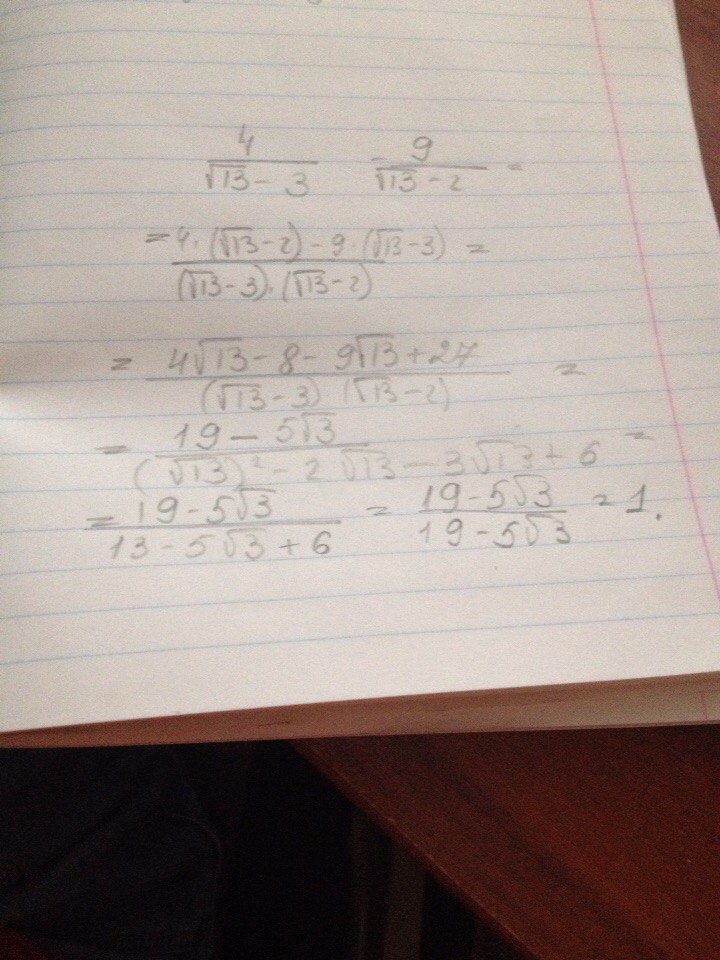 4/(√13 - 3) - 9/(√13 - 2) =
= (4·(√13-2) - 9·(√13-3))/((√13-3)·(√13-2)) =
= (4√13 - 8 - 9√13 + 27)/((√13-3) (√13-2)) =
= (19 - 5√3)/((√13)² - 2√13 - 3√13 + 6) =
= (19 - 5√3)/(13 - 5√3 + 6) = (19 - 5√3)/(19 - 5√3) = 1.